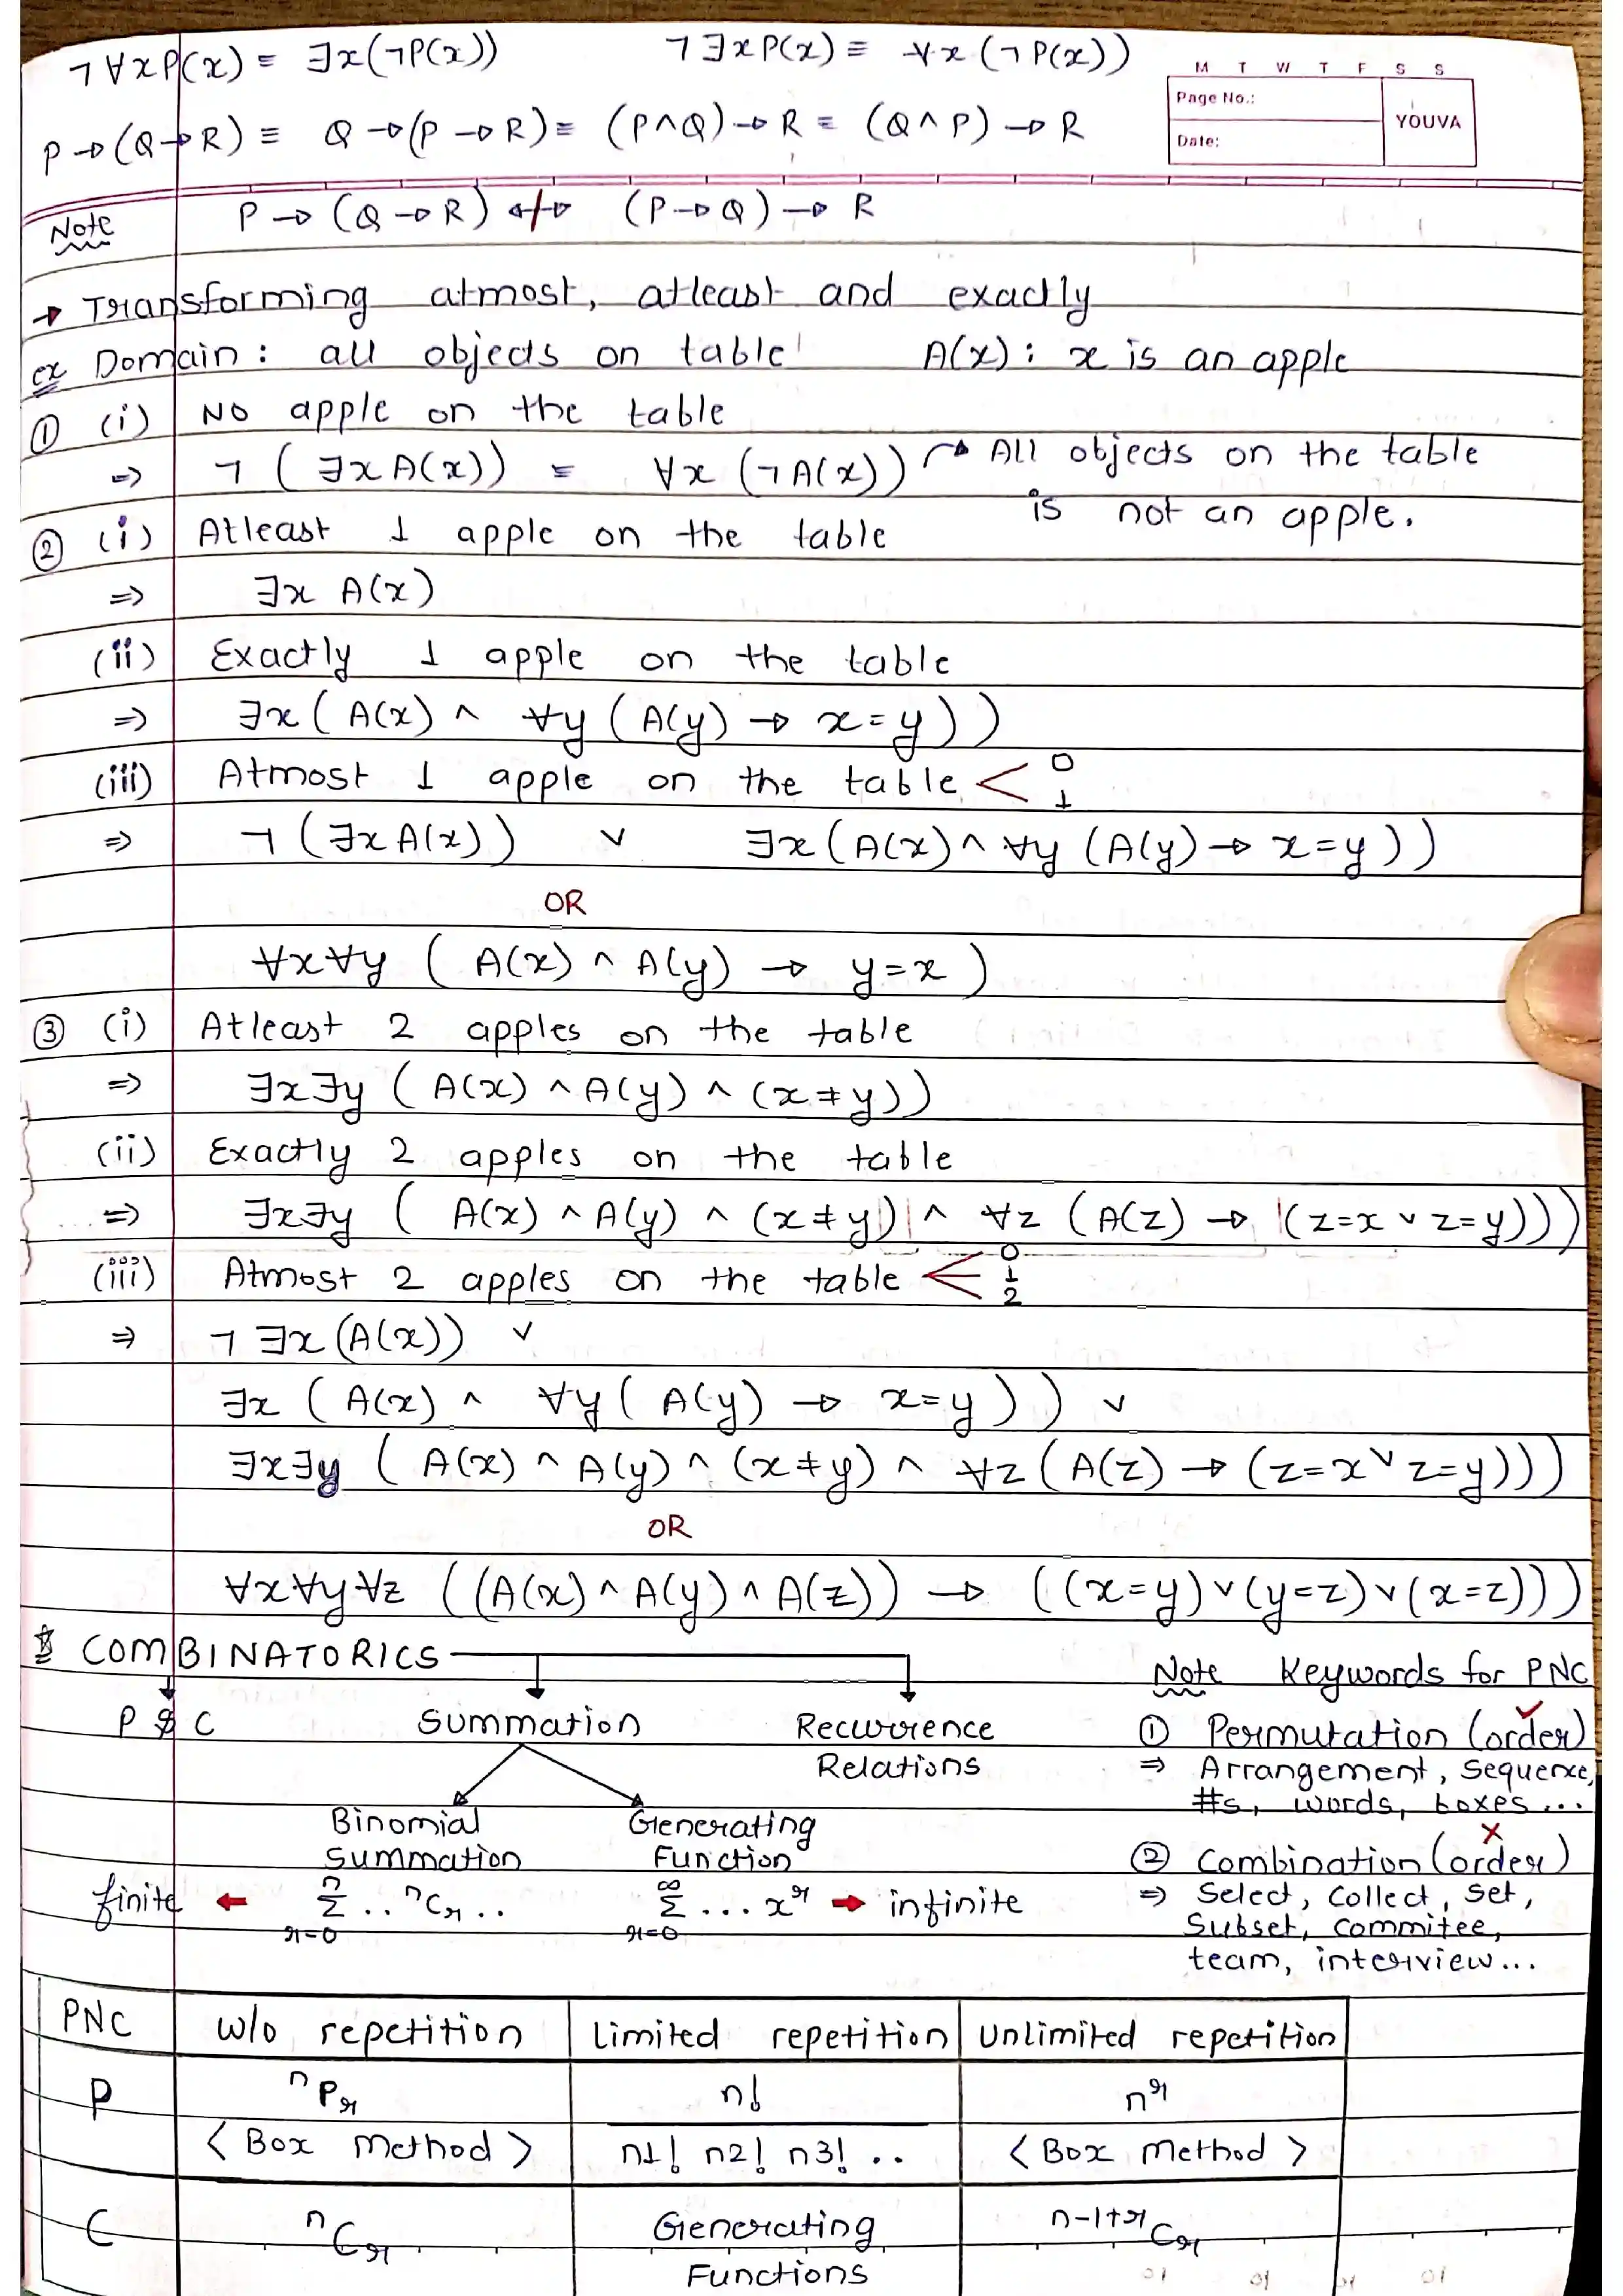 ¬∀xP(x) ≡ ∃x(¬P(x))    ¬∃xP(x) ≡ ∀x(¬P(x))
M T W T F S S
Page No.:
YOUVA
Date:
P→(Q→R) ≡ Q→(P→R) ≡ (P∧Q)→R ≡ (Q∧P)→R
Note P→(Q→R) ↮ (P→Q)→R
→ Transforming atmost, atleast and exactly
ex Domain: all objects on table    A(x): x is an apple
① (i) No apple on the table
⇒ ¬(∃xA(x)) ≡ ∀x(¬A(x)) → All objects on the table
is not an apple.
② (i) Atleast 1 apple on the table
⇒ ∃x A(x)
(ii) Exactly 1 apple on the table
⇒ ∃x(A(x) ∧ ∀y(A(y) → x=y))
(iii) Atmost 1 apple on the table < 0 1
⇒ ¬(∃xA(x)) ∨ ∃x(A(x) ∧ ∀y(A(y) → x=y))
OR
∀x∀y (A(x) ∧ A(y) → y=x)
③ (i) Atleast 2 apples on the table
⇒ ∃x∃y (A(x) ∧ A(y) ∧ (x≠y))
(ii) Exactly 2 apples on the table
⇒ ∃x∃y (A(x) ∧ A(y) ∧ (x≠y) ∧ ∀z (A(z) → (z=x ∨ z=y)))
(iii) Atmost 2 apples on the table < 0 1 2
⇒ ¬∃x(A(x)) ∨
∃x (A(x) ∧ ∀y(A(y) → x=y)) ∨
∃x∃y (A(x) ∧ A(y) ∧ (x≠y) ∧ ∀z(A(z) → (z=x ∨ z=y)))
OR
∀x∀y∀z ((A(x) ∧ A(y) ∧ A(z)) → ((x=y) ∨ (y=z) ∨ (x=z)))
COMBINATORICS
P & C    Summation    Recurrence
Relations
Binomial    Generating
Summation    Function
finite ← ⁿΣᵣ₌₀ .. ⁿCᵣ ..    ∞Σᵣ₌₀ ... xʳ → infinite
Note Keywords for PNC
① Permutation (order) ✓
⇒ Arrangement, sequence,
#s, words, boxes...
② Combination (order) ✗
⇒ Select, Collect, Set,
Subset, Commitee,
team, interview...
PNC    w/o repetition    Limited repetition    Unlimited repetition
P    ⁿPᵣ    n!    nʳ
<Box Method>    n1! n2! n3! ..    <Box Method>
C    ⁿCᵣ    Generating    ⁿ⁻¹⁺ʳCᵣ
Functions